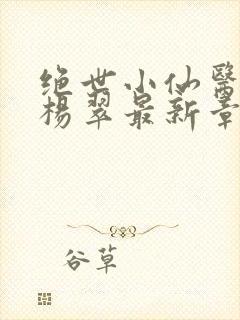 绝世小仙醫
杨翠最新章
谷草